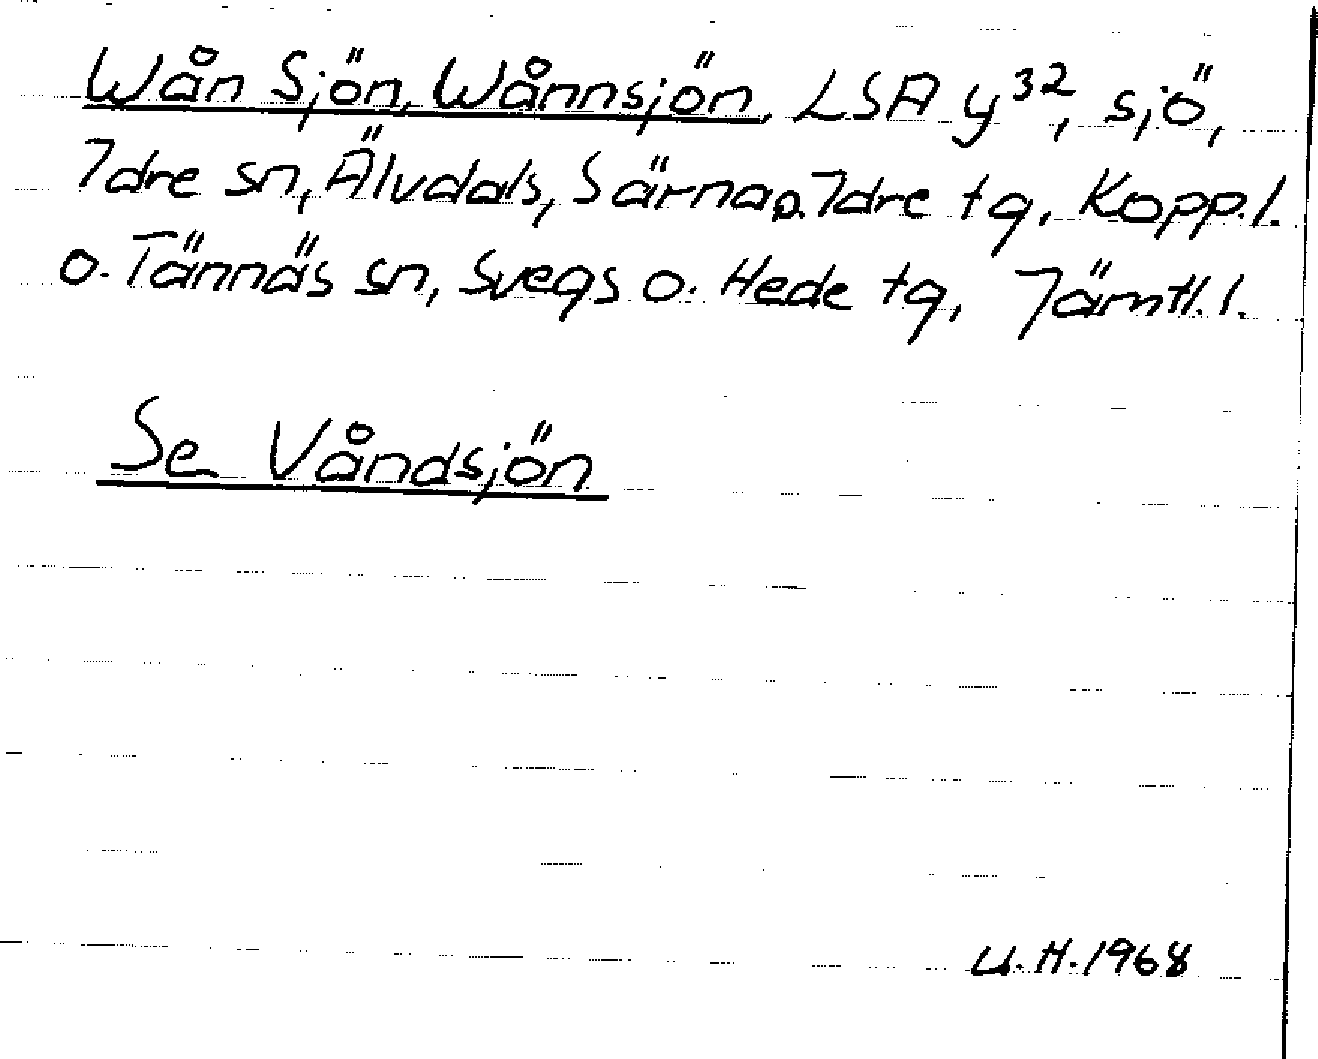 Wån Sjön, Wånnsjön, LSA y³², sjö,
Idre sn, Älvdals, Särna o. Idre tg, Kopp.l.
o. Tännäs sn, Svegs o. Hede tg, Jämtl.l.
Se Våndsjön
U.H.1968